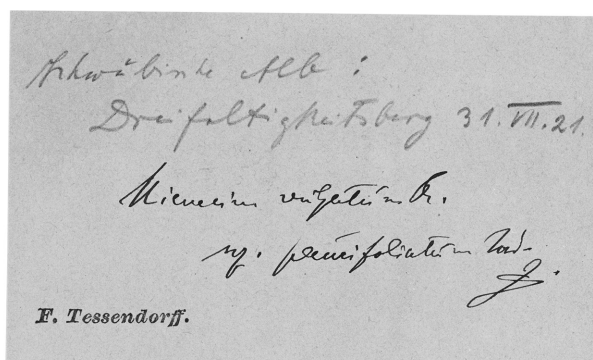 Schwäbische Alb:
Dreifaltigkeitsberg 31.VII.21.
Hieracium vulgatum Fr.
sp.
F. Tessendorff.